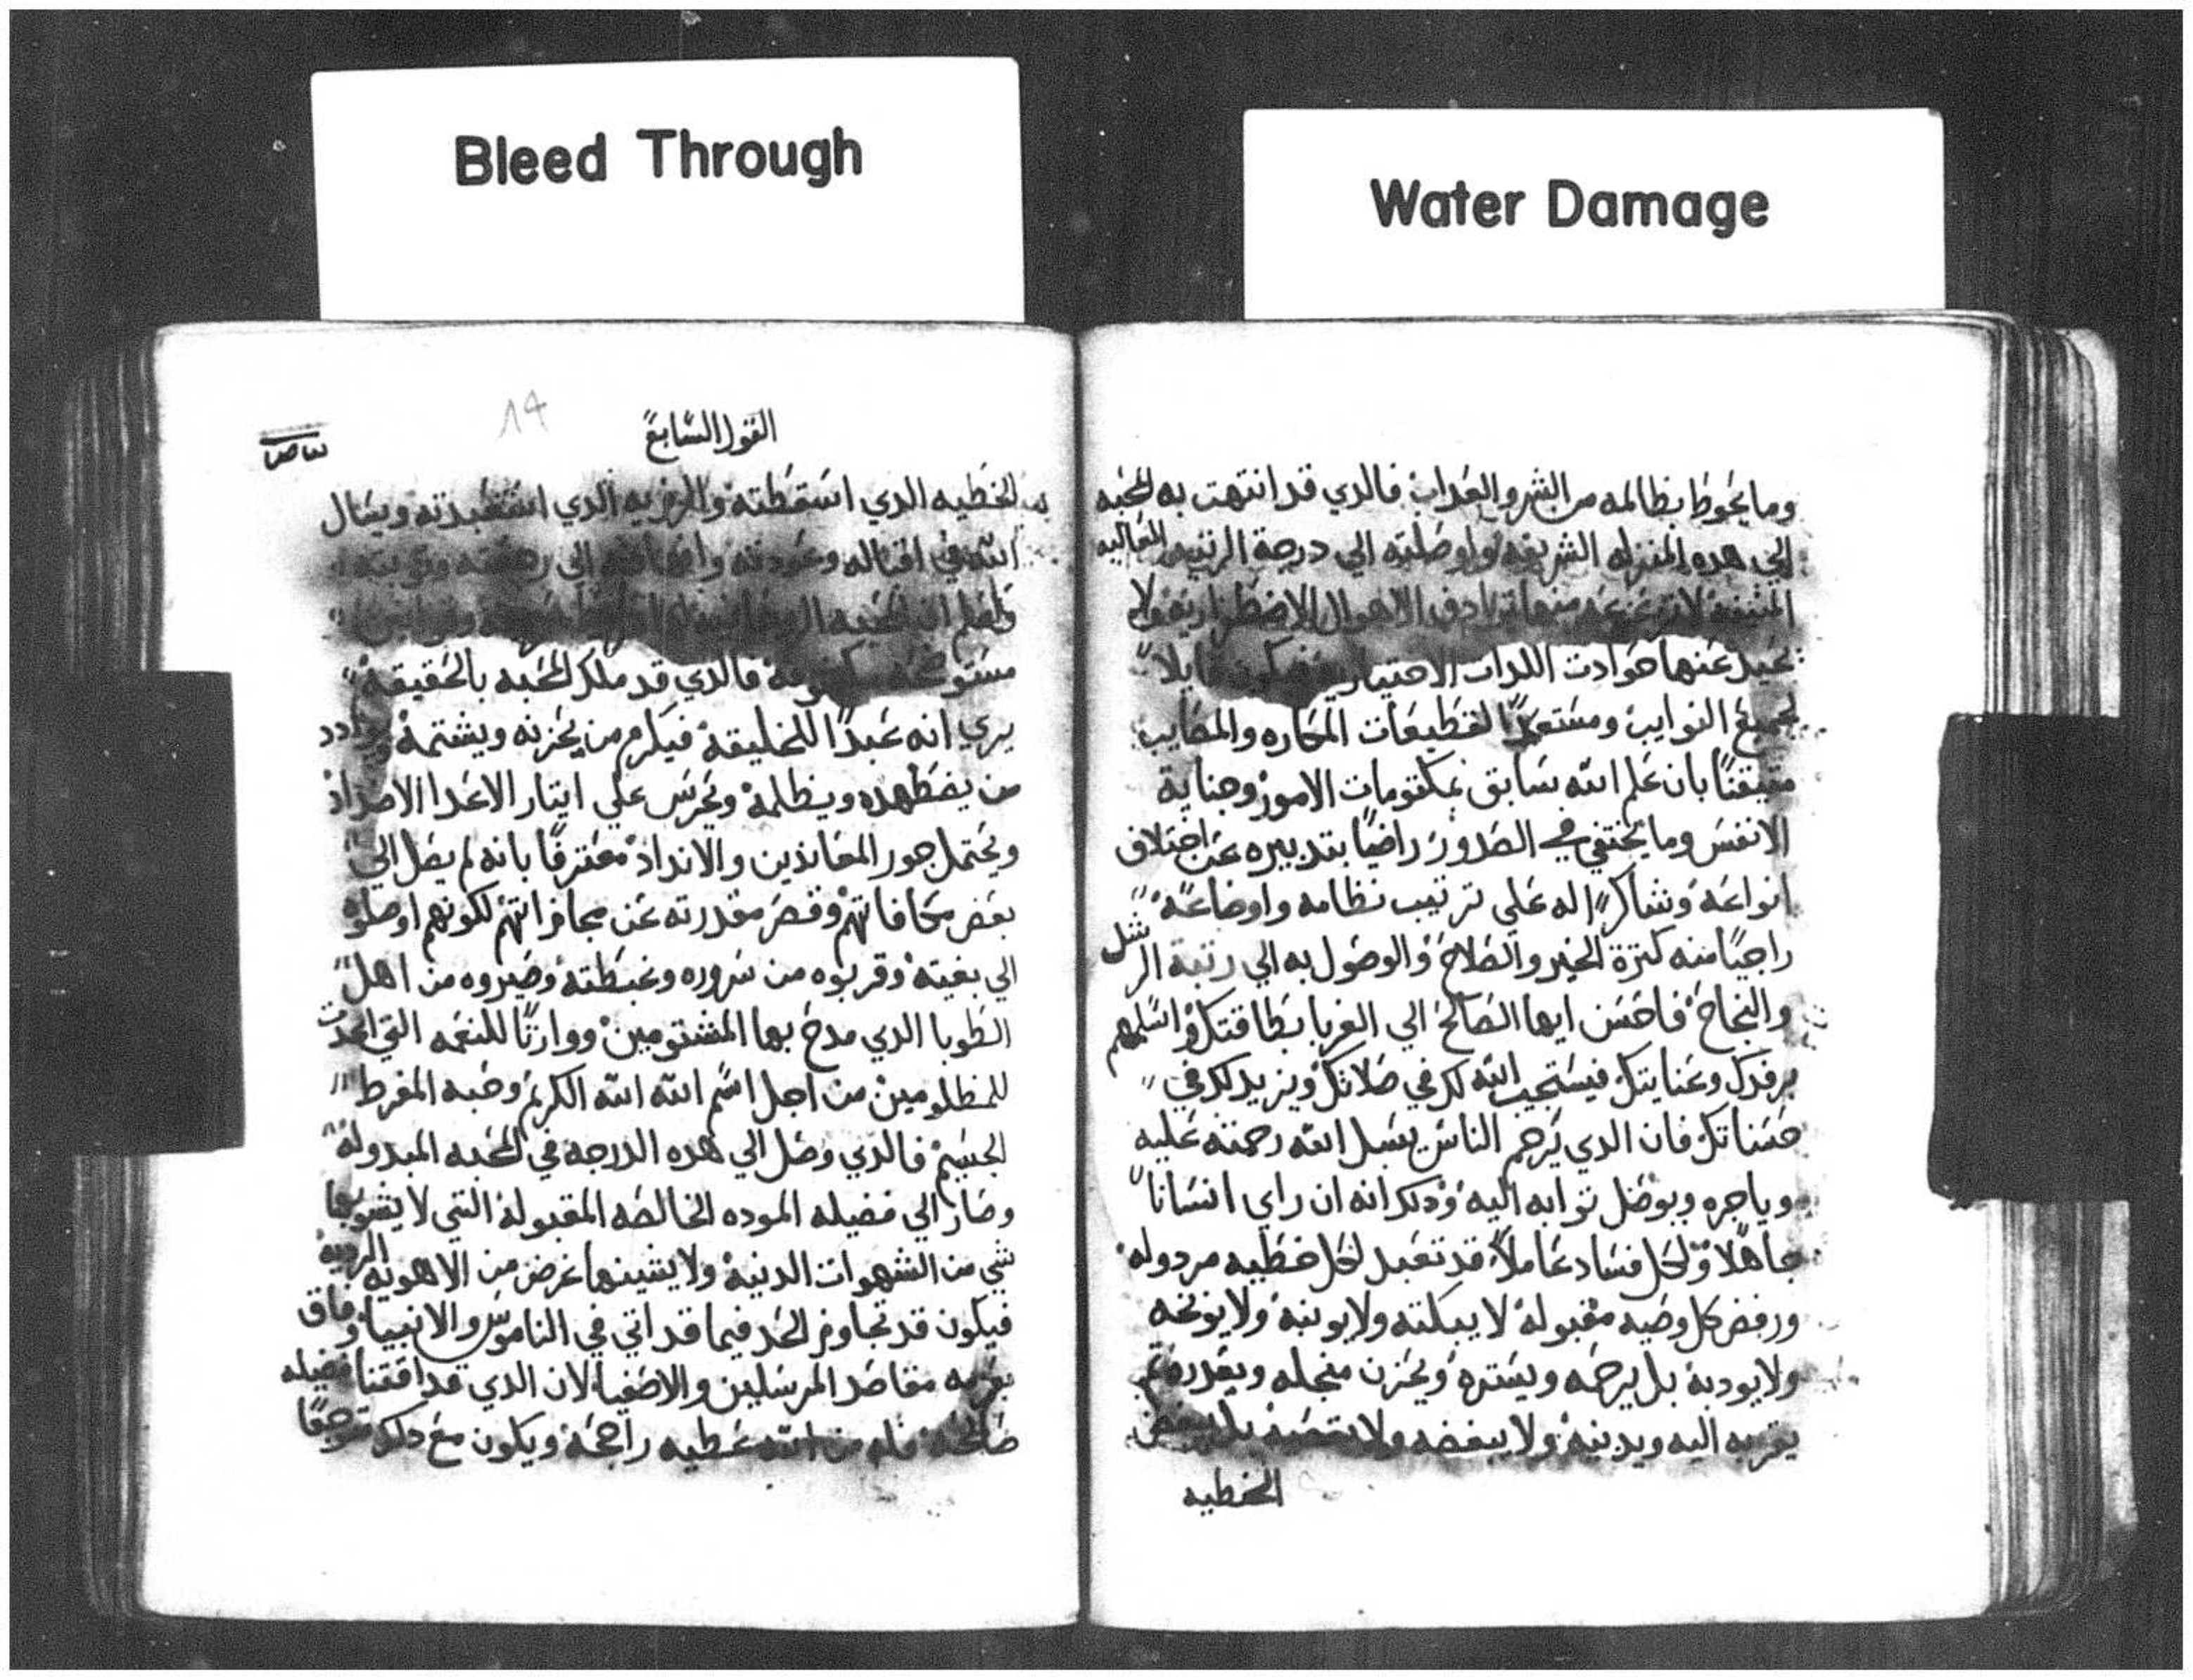 Bleed Through
Water Damage
وما يحوط بظالمه من الشر والعداب فالدي قد انتهت به المحبه
الي هده المنزله الشريفه واوصلته الي درجة الرتبه العاليه
المنيفه لا تزعزعه منها ترادف الاهوال الاضطراريه ولا
عنها حوادت اللدات قايلا
لجميع النوايب ومستعدًا لقطيعات المكاره والمصايب
متيقنًا بان علم الله سابق بمكتومات الامور وجناية
الانفس وما يختفي في الصدور راضيًا بتدبيره عن اختلاف
انواعه وشاكرًا له علي ترتيب نظامه واوضاعه
راجيًا منه كترة الخير والصلاح والوصول به الي رتبة
والنجاح فاحسن ايها الصالح الي الغربا بطاقتك واشملهم
برفدك وعنايتك فيستجيب الله لك في صلاتك ويزيد لك في
حسناتك فان الدي يرحم الناس يسبل الله رحمته عليه
وياجره ويوصل توابه اليه ودلك انه ان راي انسانا
جاهلا ولكل فساد عاملا قد تعبد لكل خطيه مردوله
ورفض كل وصيه مقبوله لا يبكته ولا يونبه ولا يوبخه
ولا يوديه بل يرحمه ويستره ويحزن من اجله ويعدره تم
يقربه اليه ويدنيه ولا يبغضه ولا بل يبغض
الخطيه
القول السابع
١٩
الخطيه الدي اسقطته الدي استعبدته ويسال
الله في اقباله وعودته الي
واعلم ان
فالدي قد ملك المحبه بالحقيقه
يري انه عبدًا للخليقه فيكرم من يحزنه ويشتمه ويوادد
من يضطهده ويظلمه ويحرس علي ايتار الاعدا الاضداد
ويحتمل جور المعاندين والانداد معترفًا بانه لم يصل الي
بعض مكافاتهم وقصر مقدرته عن مجازاتهم لكونهم اوصلوه
الي بغيته وقربوه من سروره وغبطته وصيروه من اهل
الطوبا الدي مدح بها المشتومين ووارتًا للنعمه التي اعدت
للمظلومين من اجل اسم الله الله الكريم وحبه المفرط
الجسيم فالدي وصل الي هده الدرجه في المحبه المبدوله
وصار الي فضيله الموده الخالصه المقبوله التي لا يشوبها
شي من الشهوات الدنيه ولا يشينها غرض من الاهويه الرديه
فيكون قد تجاوز الحد فيما قد اتي في الناموس والانبيا وفاق
مقاصد المرسلين والاصفيا لان الدي قد اقتنا فضيله
صالحه من الله عطيه راجحه ويكون مع دلك